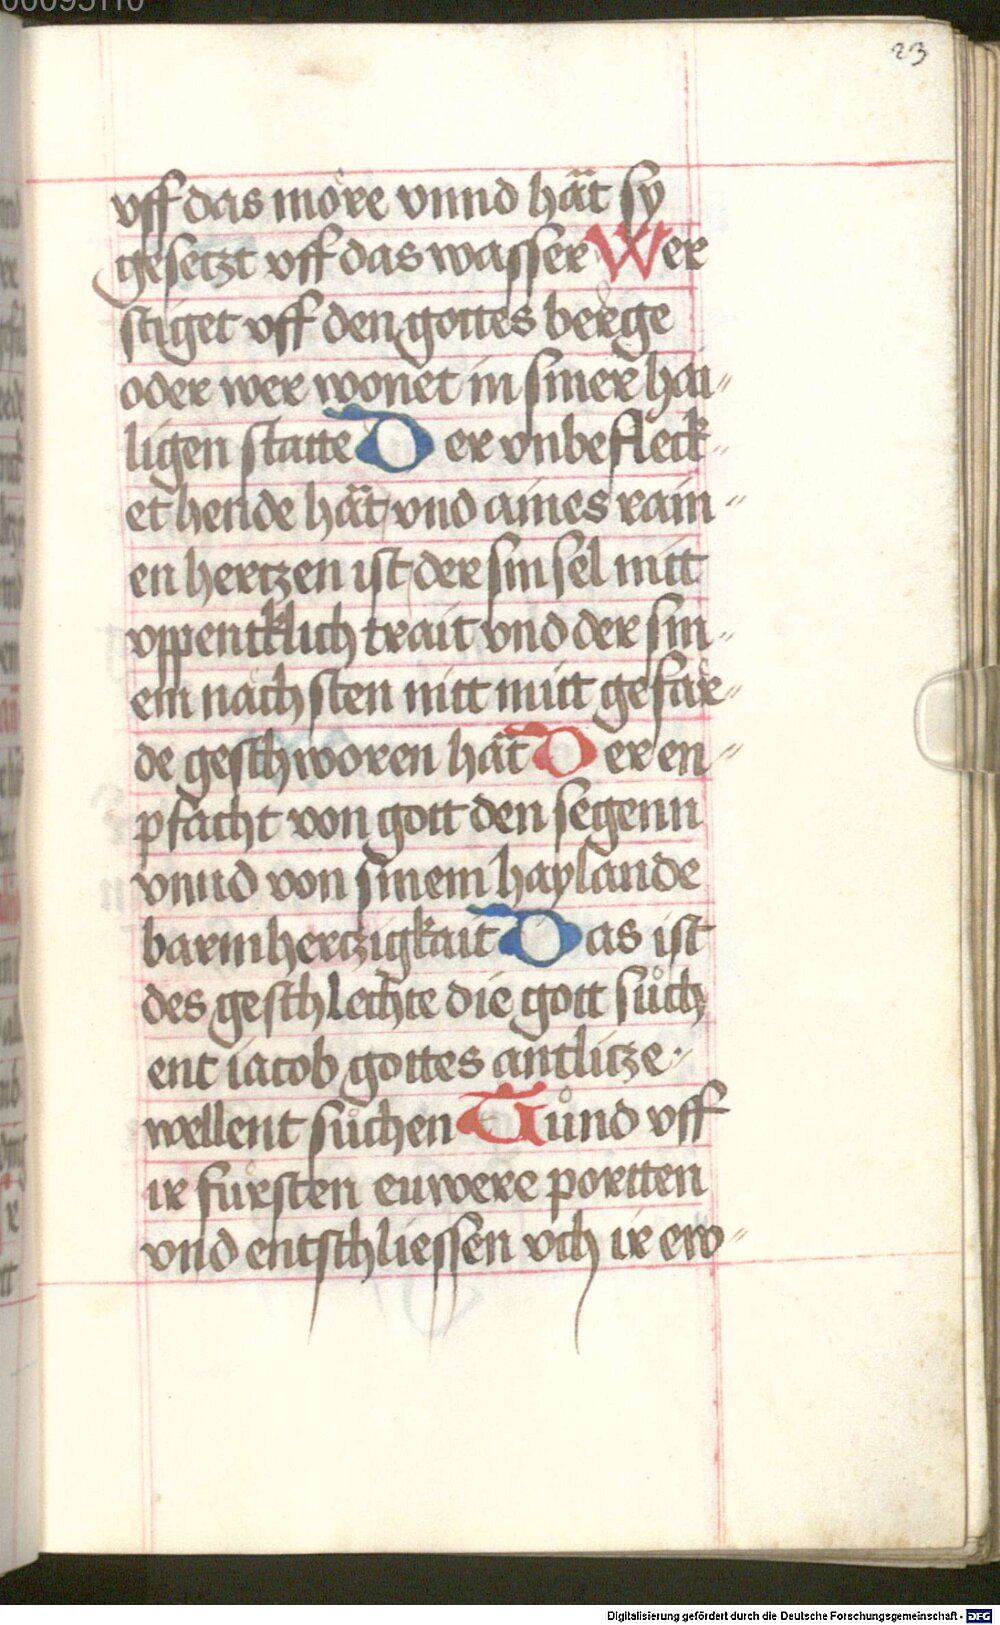 23
vff das möre vnnd hät sy
gesetzt vff das wasser Wer
stiget vff den gottes berge
oder wer wonet in siner hai〃
ligen statte Der vnbefleck〃
et hende hät vnd aines rain〃
en hertzen ist der sin sel nitt
vppentklich trait vnd der sin〃
em nächsten nitt mitt gefär〃
de geschworen hät Der en〃
pfacht von gott den segenn
vnnd von sinem haylande
barmhertzigkait Das ist
des geschlechte die gott sůch
ent iacob gottes antlitze·
wellent sůchen Tůnd vff
ir fürsten euwere portten
vnd entschliessen vch ir ew〃
Digitalisierung gefördert durch die Deutsche Forschungsgemeinschaft - DFG